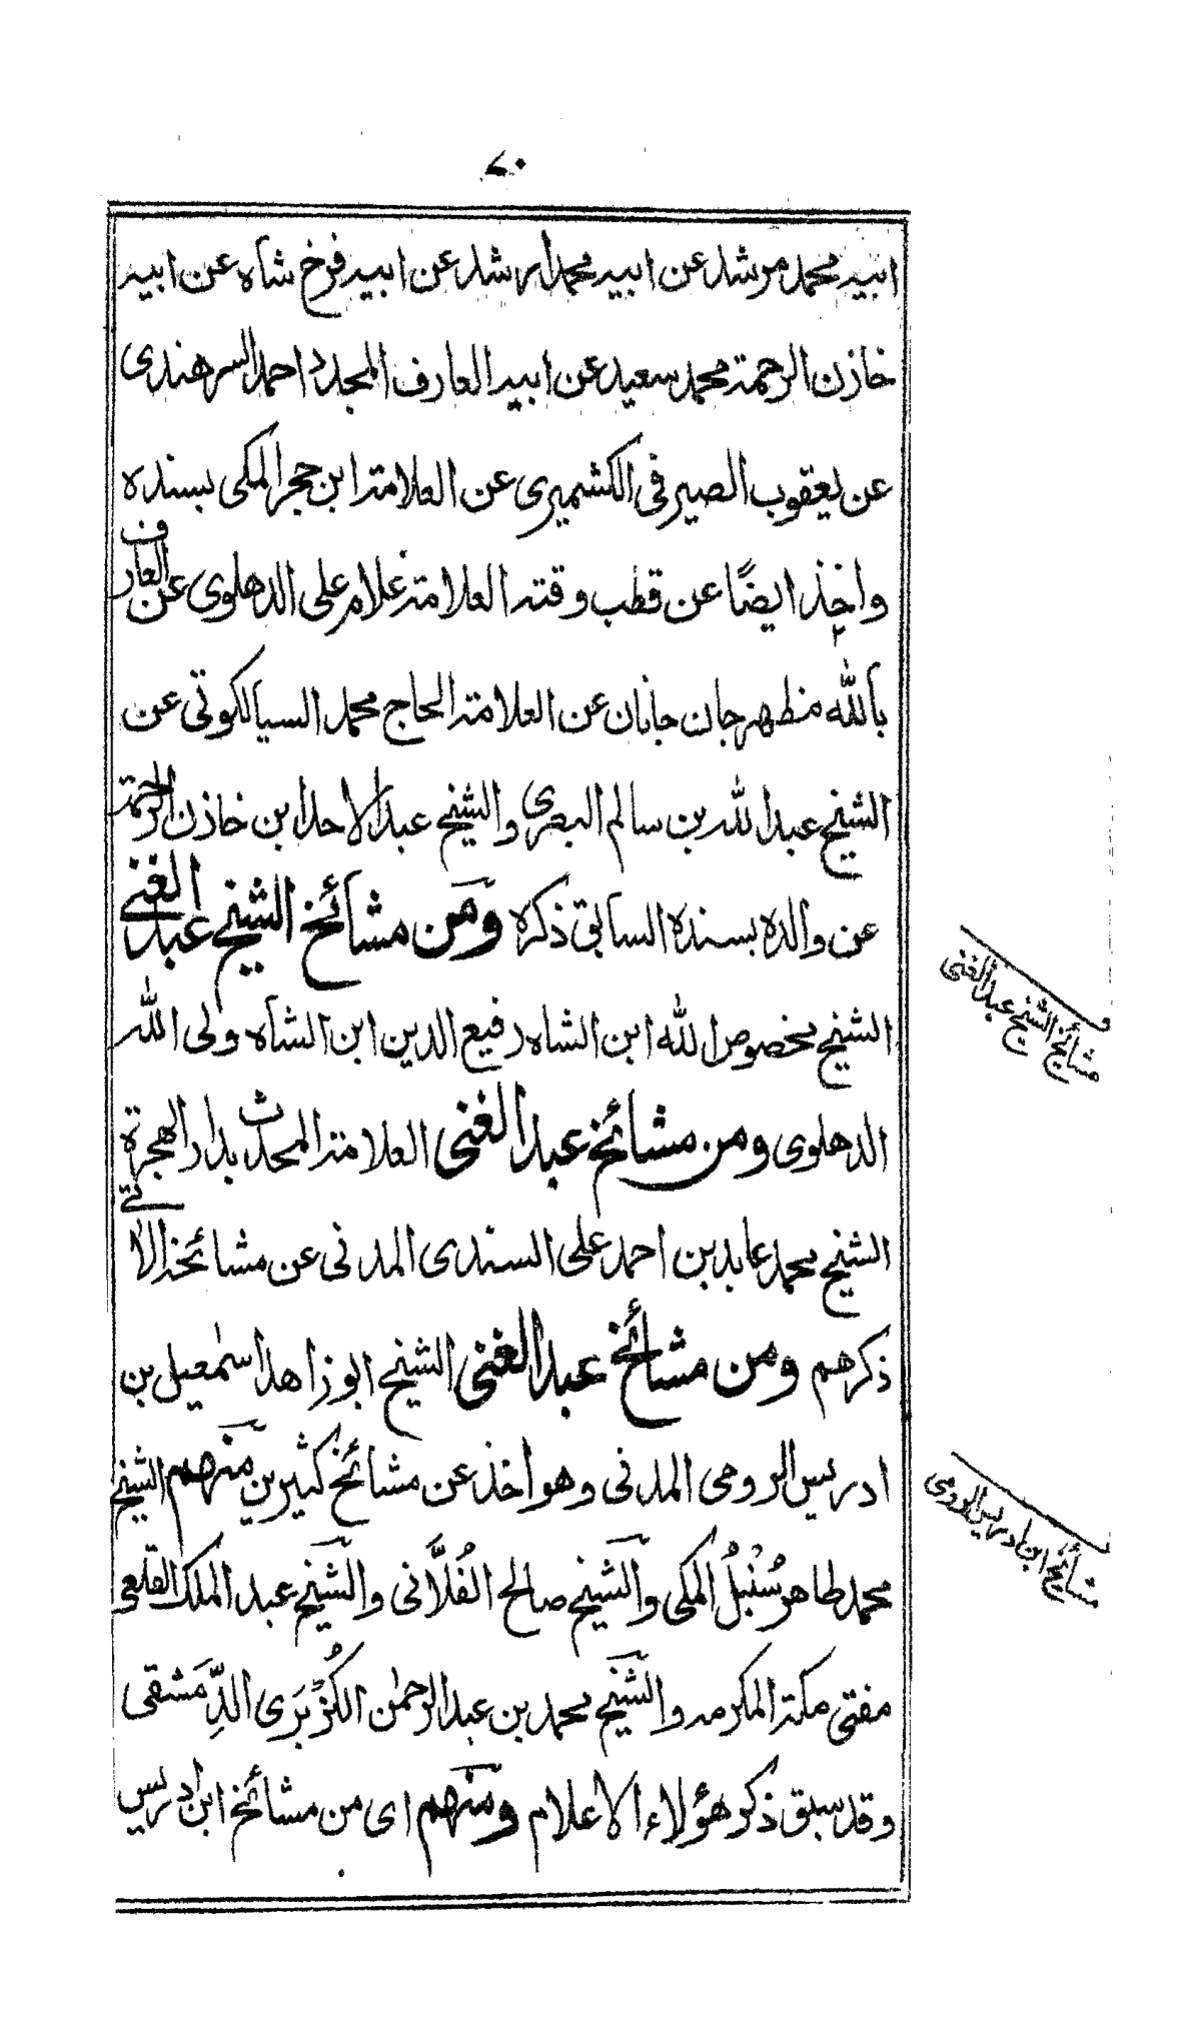 ٧٠
ابيه محمد مرشد عن ابيه محمد ارشد عن ابيه فرخ شاه عن ابيه
خازن الرحمة محمد سعيد عن ابيه العارف المجدد احمد السرهندى
عن يعقوب الصيرفى الكشميرى عن العلامة ابن حجر المكى بسنده
واخذ ايضًا عن قطب وقته العلامة غلام على الدهلوى عن العارف
بالله مظهر جان جانان عن العلامة الحاج محمد السيالكوتى عن
الشيخ عبد الله بن سالم البصرى والشيخ عبد الاحد ابن خازن الرحمة
عن والده بسنده السابق ذكره ومن مشائخ الشيخ عبد الغنى
الشيخ مخصوص الله ابن الشاه رفيع الدين ابن الشاه ولى الله
الدهلوى ومن مشائخ عبد الغنى العلامة المحدث بدار الهجرة
الشيخ محمد عابد بن احمد على السندى المدنى عن مشائخه الاتى
ذكرهم ومن مشائخ عبد الغنى الشيخ ابو زاهد اسمٰعيل بن
ادريس الرومى المدنى وهو اخذ عن مشائخ كثيرين منهم الشيخ
محمد طاهر سُنْبُلْ المكى والشيخ صالح الفُلَّانى والشيخ عبد الملك القلعى
مفتى مكة المكرمه والشيخ محمد بن عبد الرحمٰن الكُزْبَرَى الدِّمَشقى
وقد سبق ذكر هؤلاء الاعلام ومنهم اى من مشائخ ابن ادريس
مشائخ الشيخ عبد الغنى
مشائخ ابن ادريس الرومى